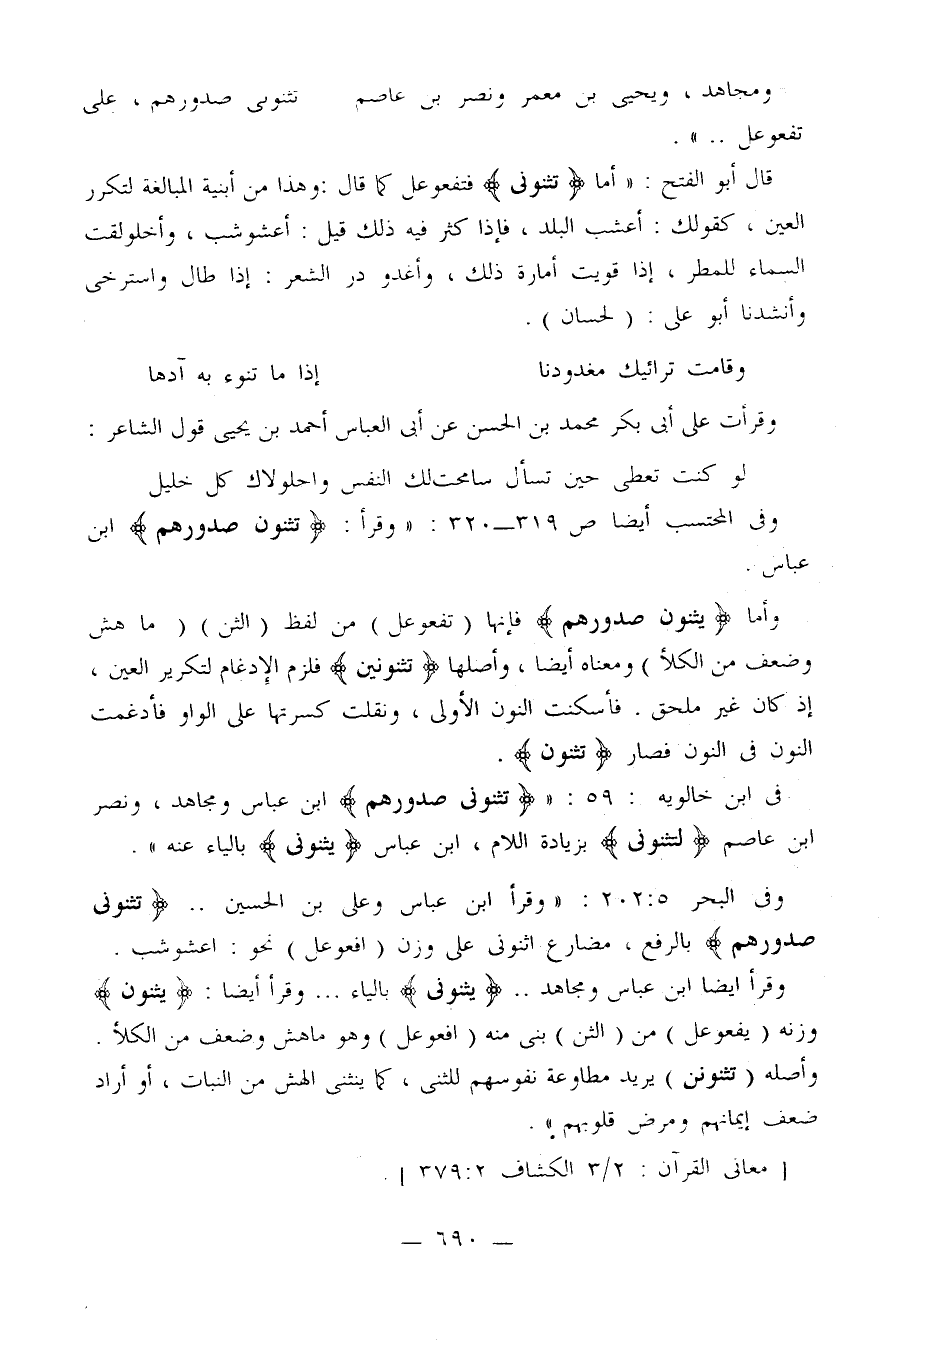 ومجاهد ، ويحيى بن معمر ونصر بن عاصم تثنونى صدورهم ، على
تفعوعل .. » .
قال أبو الفتح : « أما ﴿ تثنونى ﴾ فتفعوعل كما قال :وهذا من أبنية المبالغة لتكرر
العين ، كقولك : أعشب البلد ، فإذا كثر فيه ذلك قيل : أعشوشب ، وأخلولقت
السماء للمطر ، إذا قويت أمارة ذلك ، وأغدو در الشعر : إذا طال واسترخى
وأنشدنا أبو على : ( لحسان ) .
وقامت ترائيك مغدودنا إذا ما تنوء به آدها
وقرأت على أبى بكر محمد بن الحسن عن أبى العباس أحمد بن يحيى قول الشاعر :
لو كنت تعطى حين تسأل سامحت‌لك النفس واحلولاك كل خليل
وفى المحتسب أيضا ص ٣١٩ــ٣٢٠ : « وقرأ : ﴿ تثنون صدورهم ﴾ ابن
عباس .
وأما ﴿ يثنون صدورهم ﴾ فإنها ( تفعوعل ) من لفظ ( الثن ) ( ما هش
وضعف من الكلأ ) ومعناه أيضا ، وأصلها ﴿ تثنونين ﴾ فلزم الإدغام لتكرير العين ،
إذ كان غير ملحق . فأسكنت النون الأولى ، ونقلت كسرتها على الواو فأدغمت
النون فى النون فصار ﴿ تثنون ﴾ .
فى ابن خالويه : ٥٩ : « ﴿ تثنونى صدورهم ﴾ ابن عباس ومجاهد ، ونصر
ابن عاصم ﴿ لتثنونى ﴾ بزيادة اللام ، ابن عباس ﴿ يثنونى ﴾ بالياء عنه » .
وفى البحر ٢٠٢:٥ : « وقرأ ابن عباس وعلى بن الحسين .. ﴿ تثنونى
صدورهم ﴾ بالرفع ، مضارع اثنونى على وزن ( افعوعل ) نحو : اعشوشب .
وقرأ ايضا ابن عباس ومجاهد .. ﴿ يثنونى ﴾ بالياء ... وقرأ أيضا : ﴿ يثنون ﴾
وزنه ( يفعوعل ) من ( الثن ) بنى منه ( افعوعل ) وهو ماهش وضعف من الكلأ .
وأصله ( تثنونن ) يريد مطاوعة نفوسهم للثنى ، كما ينثنى الهش من النبات ، أو أراد
ضعف إيمانهم ومرض قلوبهم » .
[ معانى القرآن : ٣/٢ الكشاف ٣٧٩:٢ ] .
— ٦٩٠ —